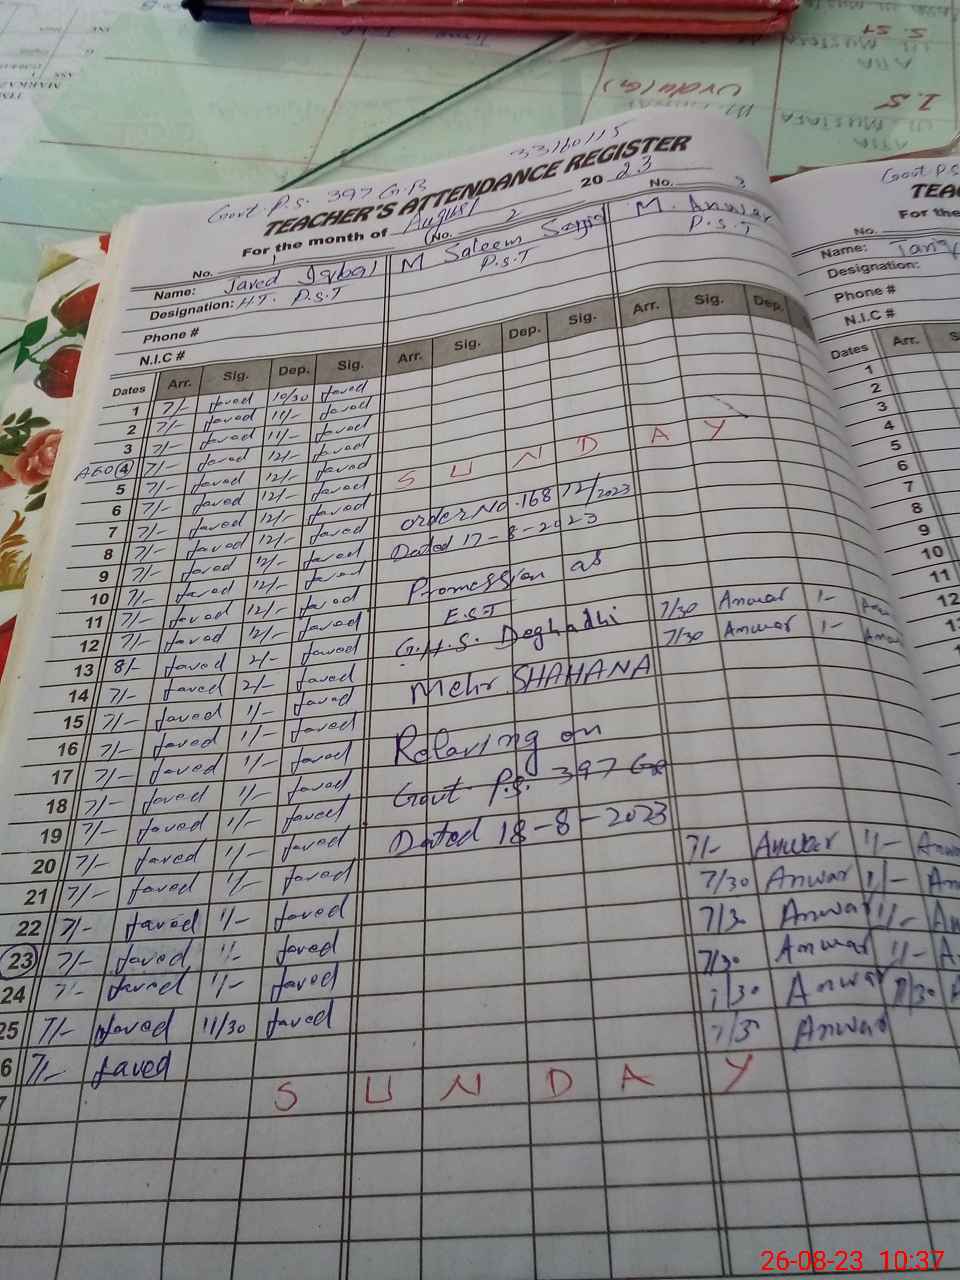 33160115
Govt. P.S. 397 G.B
TEACHER'S ATTENDANCE REGISTER
For the month of August 2023
No. 1 No. 2 No. 3
Name: Javed Iqbal M Saleem M. Anwar
Designation: H.T. P.S.T P.S.T P.S.T
Phone #
N.I.C #
Dates Arr. Sig. Dep. Sig. Arr. Sig. Dep. Sig. Arr. Sig. Dep.
1 7/- Javed 10/30 Javed
2 7/- Javed 11/- Javed
3 7/- Javed 11/- Javed
AEO 4 7/- Javed 12/- Javed
5 7/- Javed 12/- Javed
6 7/- Javed 12/- Javed S U N D A Y
7 7/- Javed 12/- Javed order No. 168 12/2023
8 7/- Javed 12/- Javed Dated 17-8-2023
9 7/- Javed 12/- Javed
10 7/- Javed 12/- Javed Promession as
11 7/- Javed 12/- Javed E.S.T
12 7/- Javed 12/- Javed G.H.S. Deghadhi 7/30 Anwar 1/-
13 8/- Javed 2/- Javed 7/30 Anwar 1/-
14 7/- Javed 2/- Javed Mehr SHAHANA
15 7/- Javed 1/- Javed
16 7/- Javed 1/- Javed Relaving on
17 7/- Javed 1/- Javed
18 7/- Javed 1/- Javed Govt. P.S. 397
19 7/- Javed 1/- Javed Dated 18-8-2023
20 7/- Javed 1/- Javed 7/- Anwar 1/- Anwar
21 7/- Javed 1/- Javed 7/30 Anwar 1/-
22 7/- Javed 1/- Javed 7/30 Anwar 1/-
23 7/- Javed 1/- Javed 7/30 Anwar 1/-
24 7/- Javed 1/- Javed 7/30 Anwar
25 7/- Javed 11/30 Javed Anwar
6 7/- Javed
7 S U N D A Y
Govt. P.S
For the
No.
Name:
Designation:
Phone #
N.I.C #
Dates Arr.
1
2
3
4
5
6
7
8
9
10
11
12
26-08-23 10:37